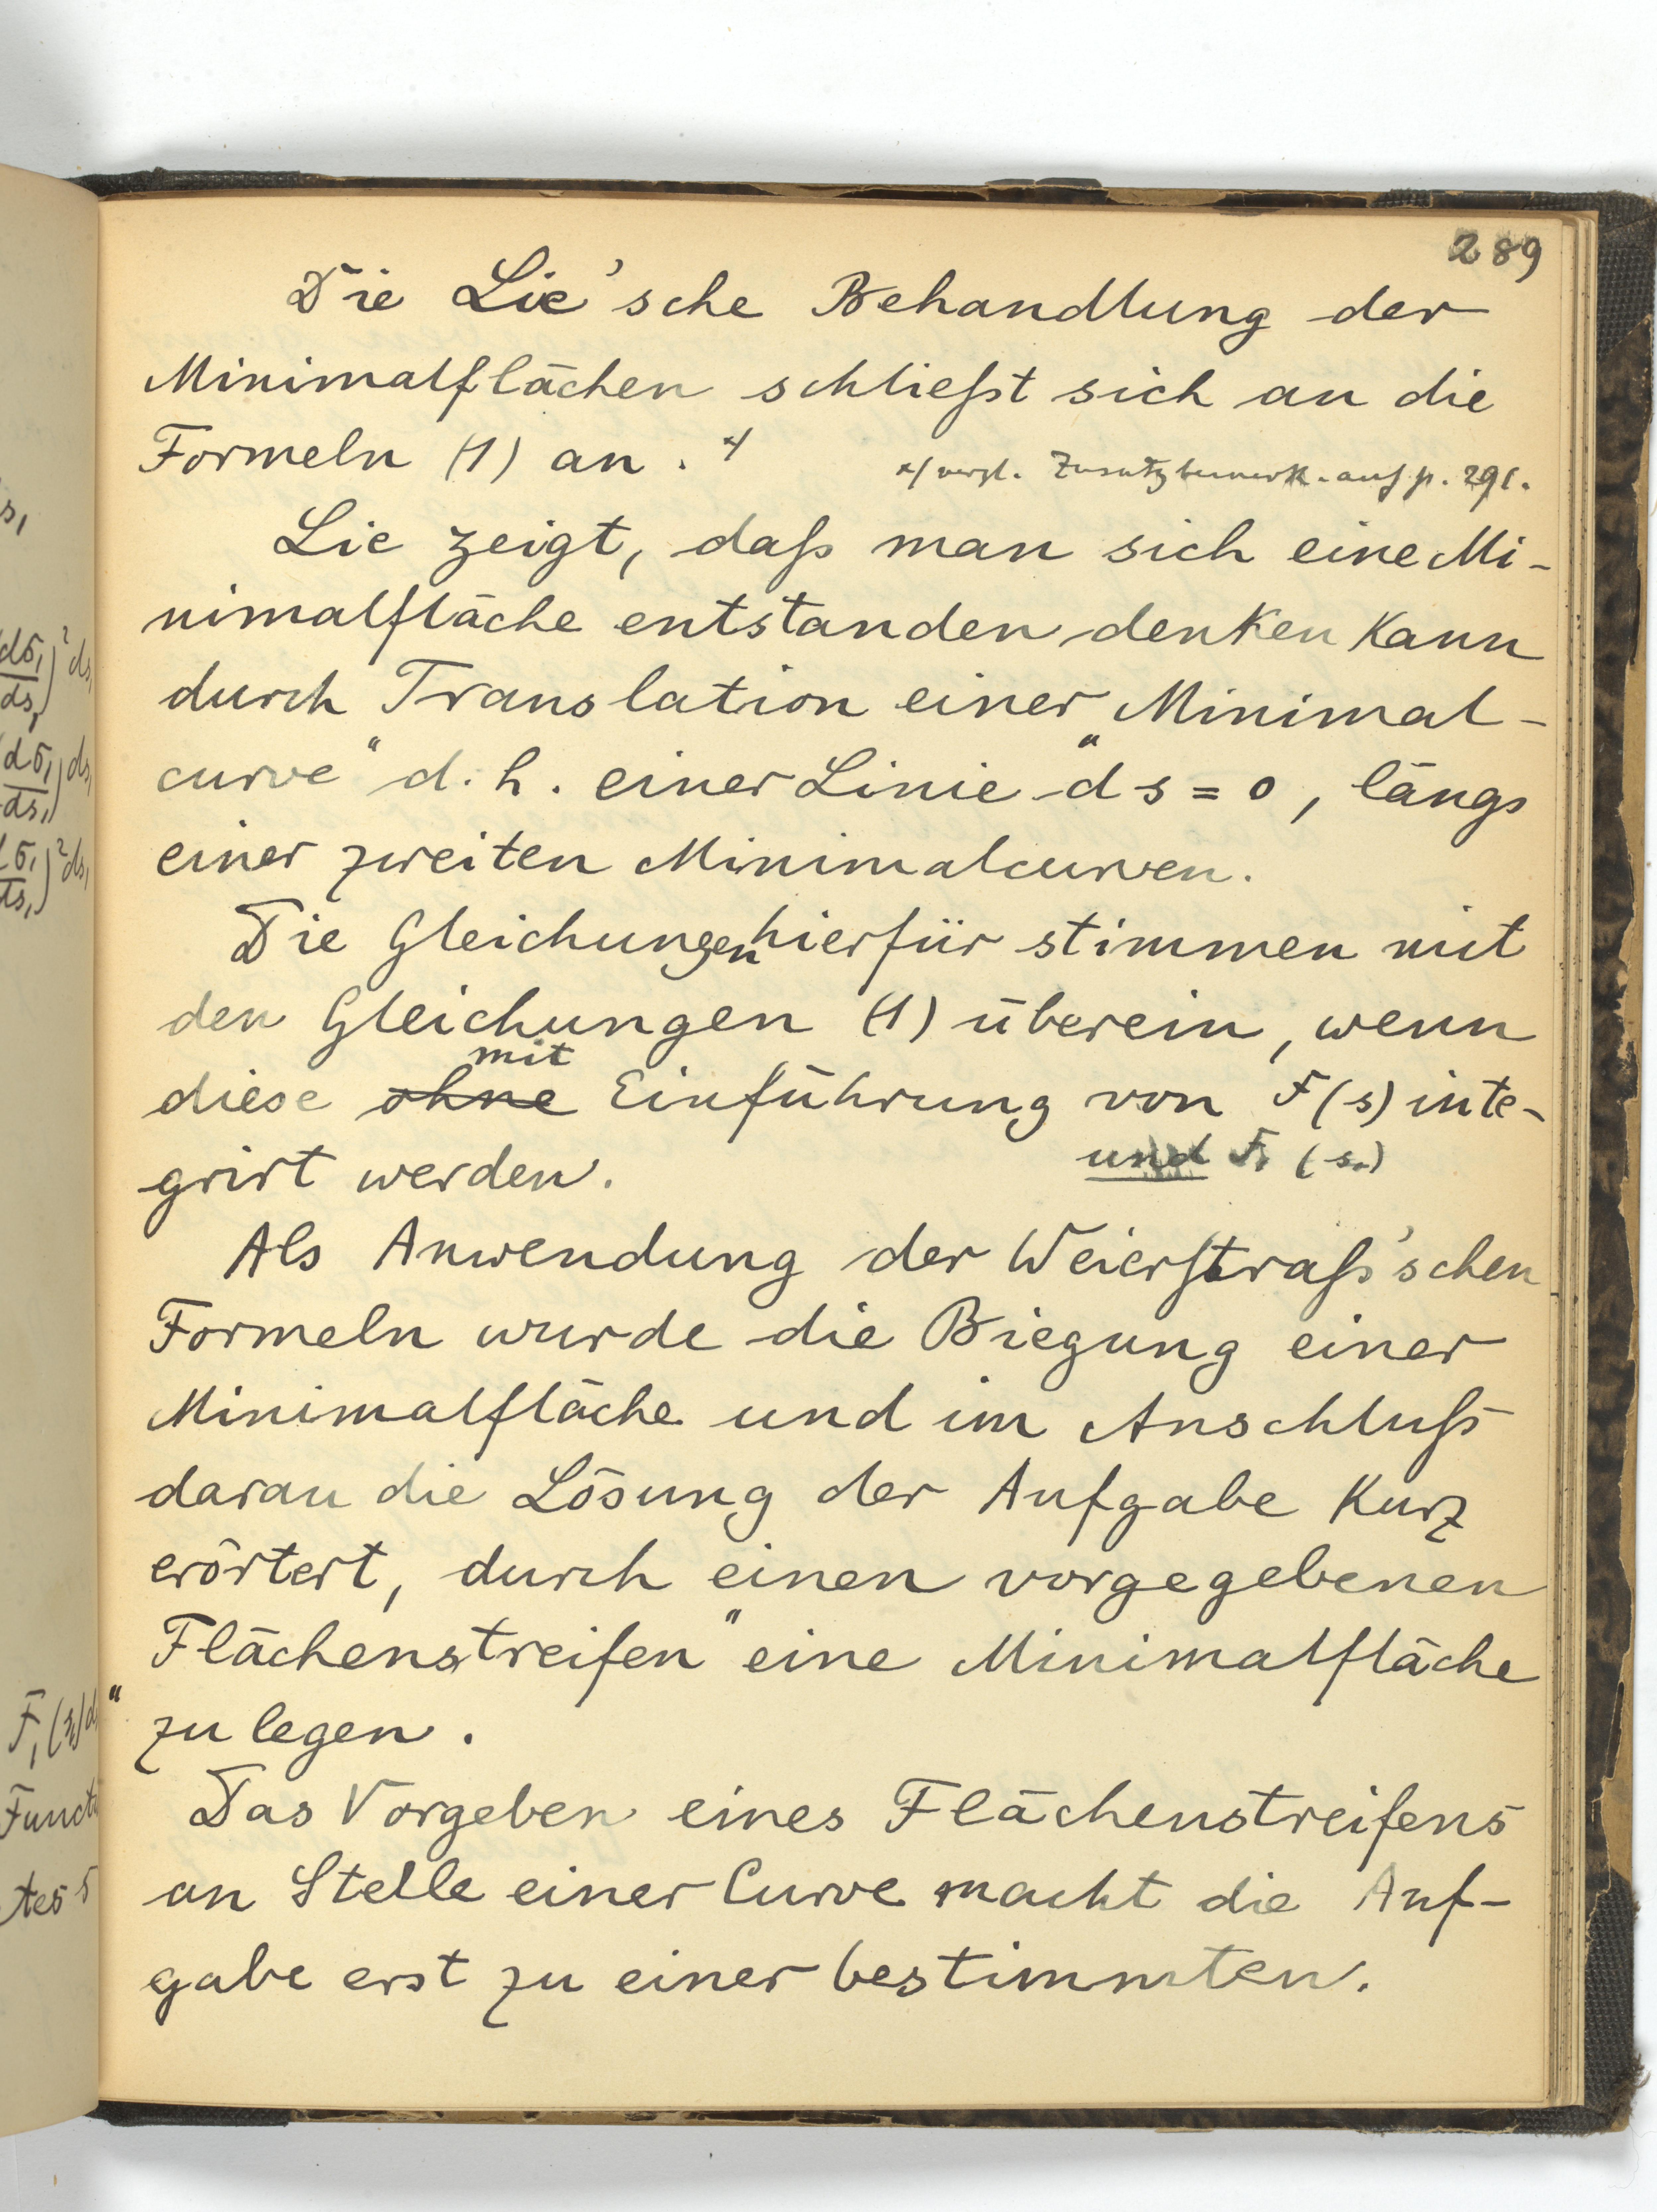 289
Die Lie'sche Behandlung der
Minimalflächen schließt sich an die
Formeln (1) an. x)
x) vergl. Zusatzbemerk. auf p. 291.
Lie zeigt, daß man sich eine Mi-
nimalfläche entstanden denken kann
durch Translation einer „Minimal-
curve“ d. h. einer Linie ds = 0, längs
einer zweiten Minimalcurven.
Die Gleichungen hierfür stimmen mit
den Gleichungen (1) überein, wenn
diese ohne mit Einführung von F(s) inte-
und F₁(s₁)
grirt werden.
Als Anwendung der Weierstraß'schen
Formeln wurde die Biegung einer
Minimalfläche und im Anschluß
daran die Lösung der Aufgabe kurz
erörtert, durch einen vorgegebenen
„Flächenstreifen“ eine Minimalfläche
zu legen.
Das Vorgeben eines Flächenstreifens
an Stelle einer Curve macht die Auf-
gabe erst zu einer bestimmten.